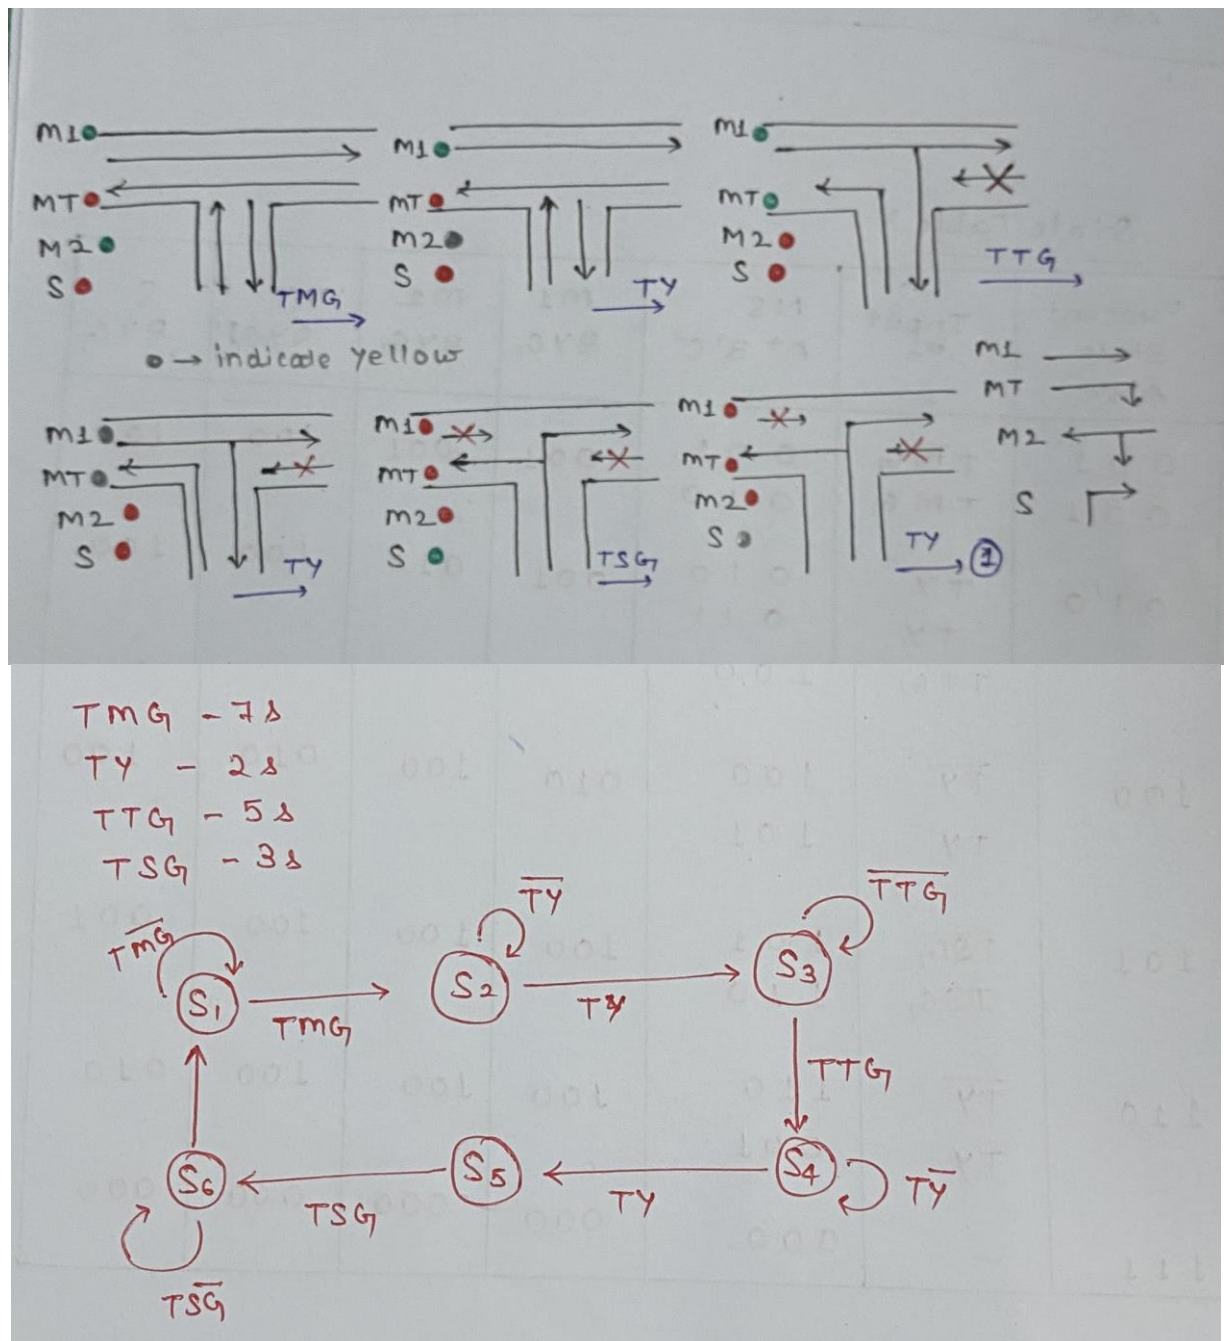 M1
MT
M2
S
TMG
M1
MT
M2
S
TY
M1
MT
M2
S
TTG
→ indicate yellow
M1
MT
M2
S
TY
M1
MT
M2
S
TSG
M1
MT
M2
S
TY → 1
M1 →
MT
M2
S
TMG - 7s
TY - 2s
TTG - 5s
TSG - 3s
T̅M̅G̅
S1
TMG
T̅Y̅
S2
TY
T̅T̅G̅
S3
TTG
S4
T̅Y̅
TY
S5
TSG
S6
T̅S̅G̅